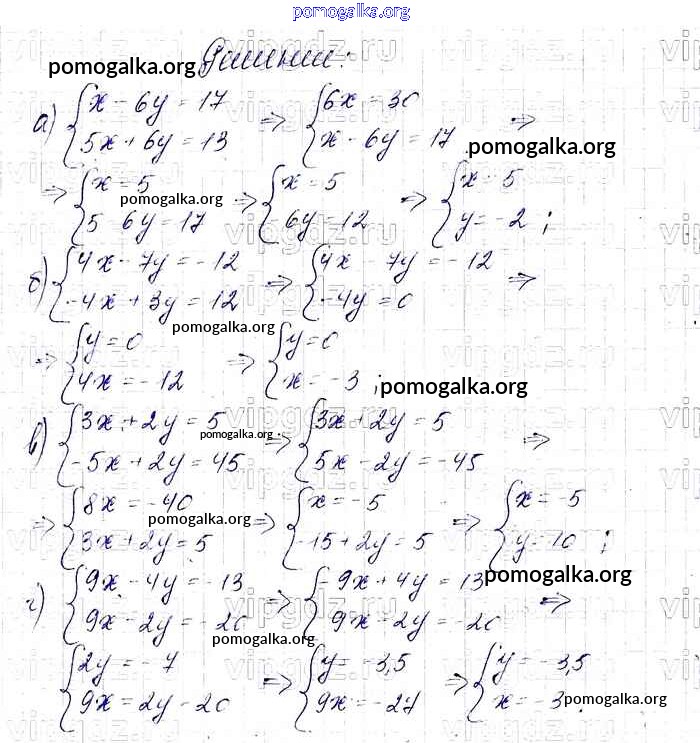 pomogalka.org
Решение:
pomogalka.org
а) { x - 6y = 17 ; 5x + 6y = 13 ⇒ { 6x = 30 ; x - 6y = 17 ⇒
pomogalka.org
⇒ { x = 5 ; 5 6y = 17 ⇒ { x = 5 ; 6y = 12 ⇒ { x = 5 ; y = -2 ;
pomogalka.org
б) { 4x - 7y = -12 ; -4x + 3y = 12 ⇒ { 4x - 7y = -12 ; -4y = 0 ⇒
pomogalka.org
⇒ { y = 0 ; 4x = -12 ⇒ { y = 0 ; x = -3 ;
pomogalka.org
в) { 3x + 2y = 5 ; -5x + 2y = 45 ⇒ { 3x + 2y = 5 ; 5x - 2y = -45 ⇒
pomogalka.org
⇒ { 8x = -40 ; 3x + 2y = 5 ⇒ { x = -5 ; -15 + 2y = 5 ⇒ { x = -5 ; y = 10 ;
pomogalka.org
pomogalka.org
г) { 9x - 4y = -13 ; 9x - 2y = -20 ⇒ { -9x + 4y = 13 ; 9x - 2y = -20 ⇒
pomogalka.org
{ 2y = -7 ; 9x = 2y - 20 ⇒ { y = -3,5 ; 9x = -27 ⇒ { y = -3,5 ; x = -3.
pomogalka.org